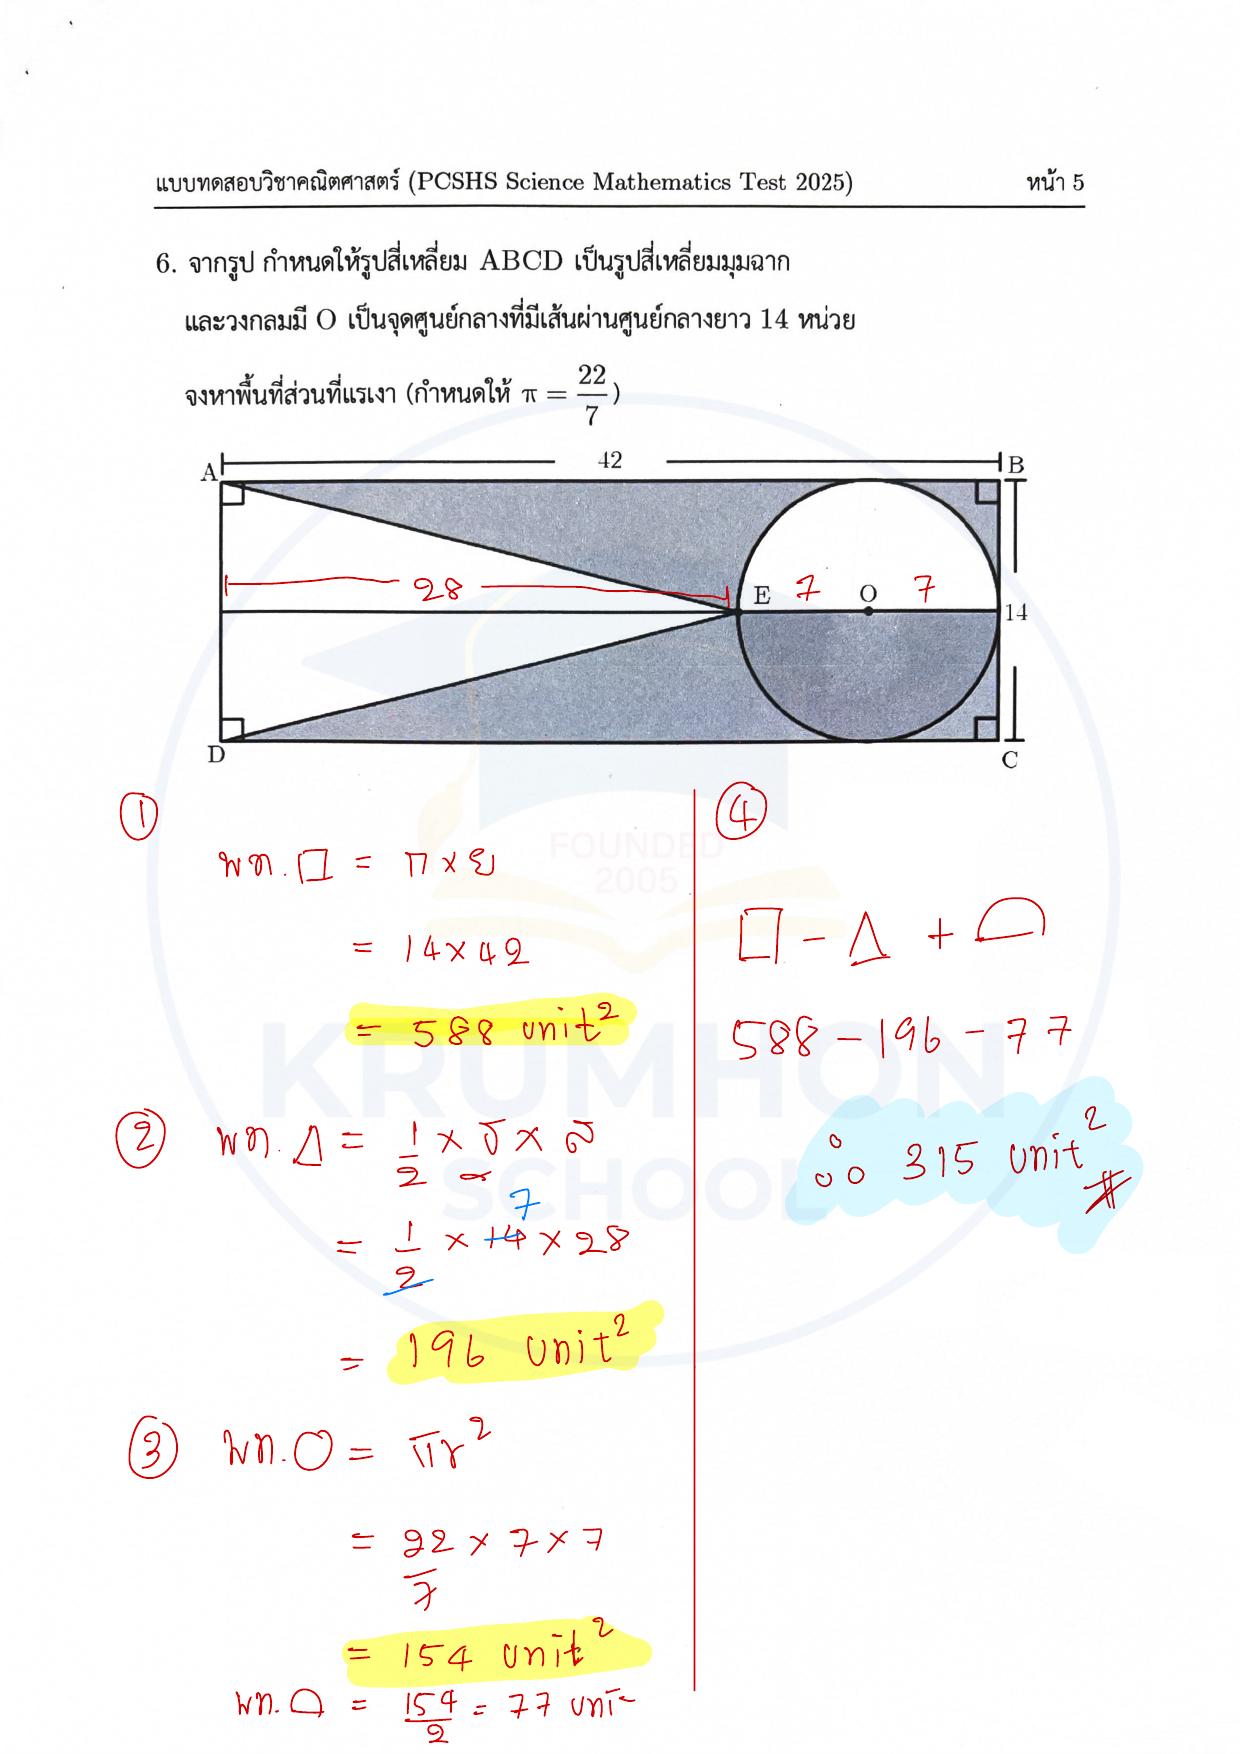 แบบทดสอบวิชาคณิตศาสตร์ (PCSHS Science Mathematics Test 2025) หน้า 5
6. จากรูป กำหนดให้รูปสี่เหลี่ยม ABCD เป็นรูปสี่เหลี่ยมมุมฉาก
และวงกลมมี O เป็นจุดศูนย์กลางที่มีเส้นผ่านศูนย์กลางยาว 14 หน่วย
จงหาพื้นที่ส่วนที่แรเงา (กำหนดให้ π = 22/7)
A 42 B
28 E 7 O 7
14
D C
①
พท.□ = ก × ย
= 14 × 42
= 588 unit²
② พท.Δ = 1/2 × ฐ × ส
7
= 1/2 × 14 × 28
= 196 unit²
③ พท.○ = πr²
= 22/7 × 7 × 7
= 154 unit²
พท.⌓ = 154/2 = 77 uni
④
□ - Δ + ⌓
588 - 196 - 77
∴ 315 unit² #
FOUNDED
2005
KRUMHON
SCHOOL